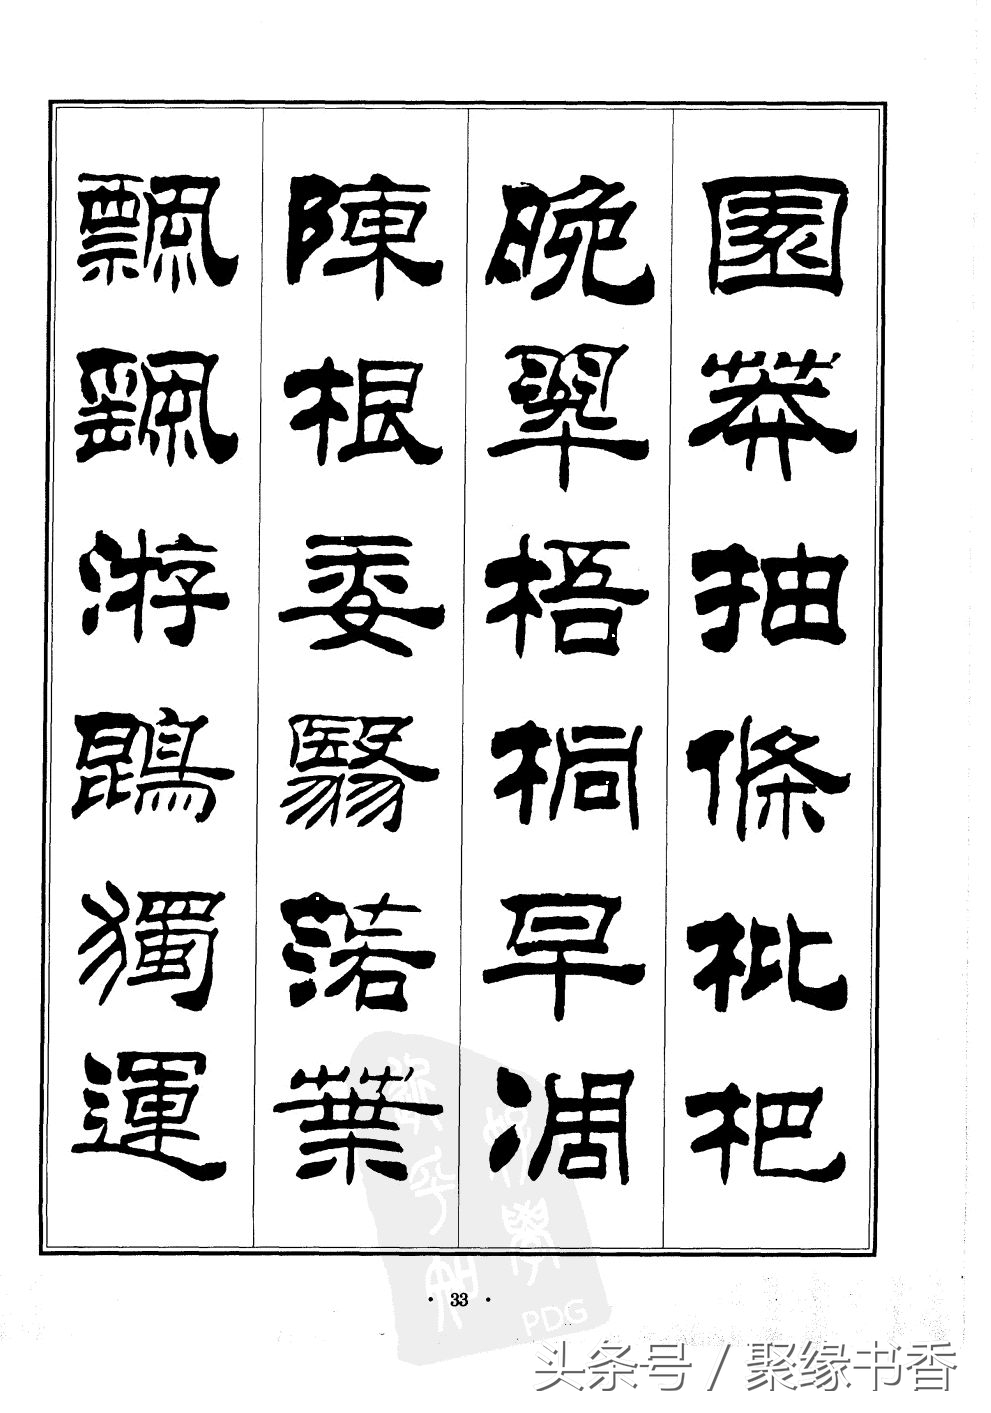 園莽抽條枇杷
晚翠梧桐早凋
陳根委翳落葉
飄颻游鵾獨運
· 33 ·
PDG
头条号 / 聚缘书香